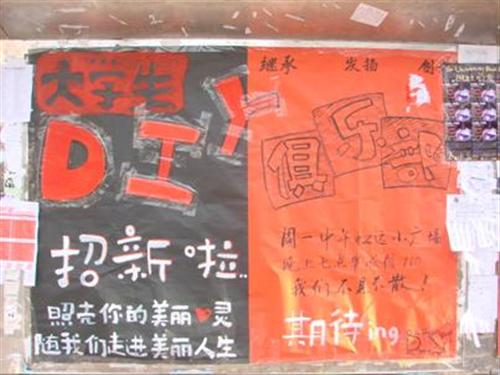 大学生
DIY
招新啦..
照亮你的美丽❤灵
随我们走进美丽人生
继承 发扬 创
俱乐部
周一中午松远小广场
晚上七点半诚信110
我们不见不散！
期待ing
DIY